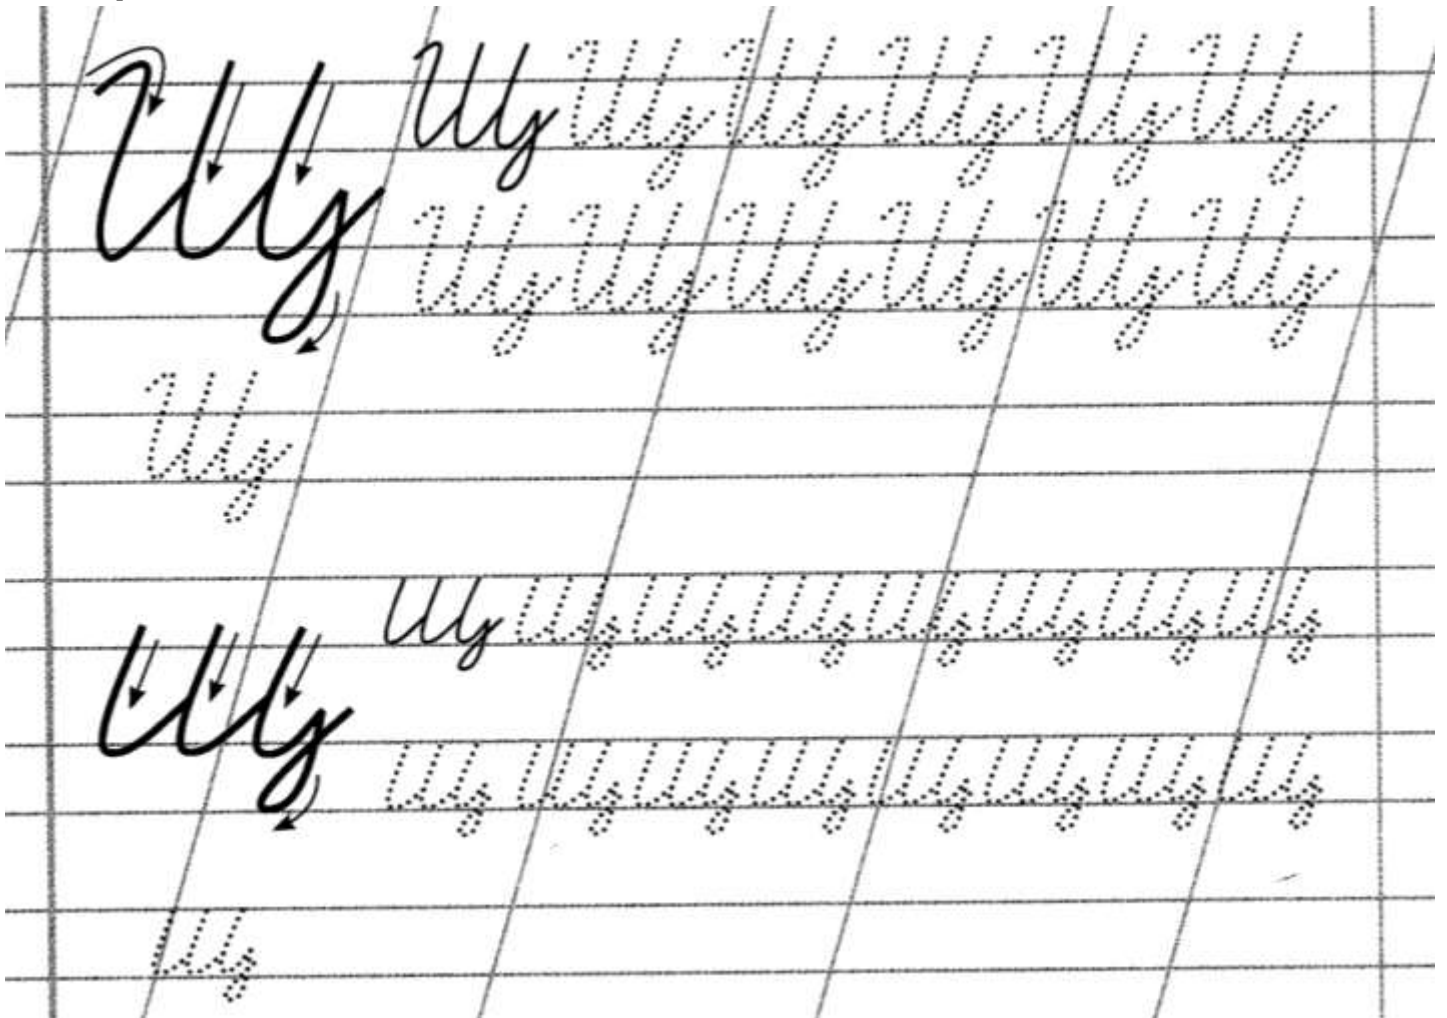 Щ Щ Щ Щ Щ Щ Щ
Щ Щ Щ Щ Щ Щ
Щ
щ щ щ щ щ щ щ щ щ
щ щ щ щ щ щ щ щ
щ